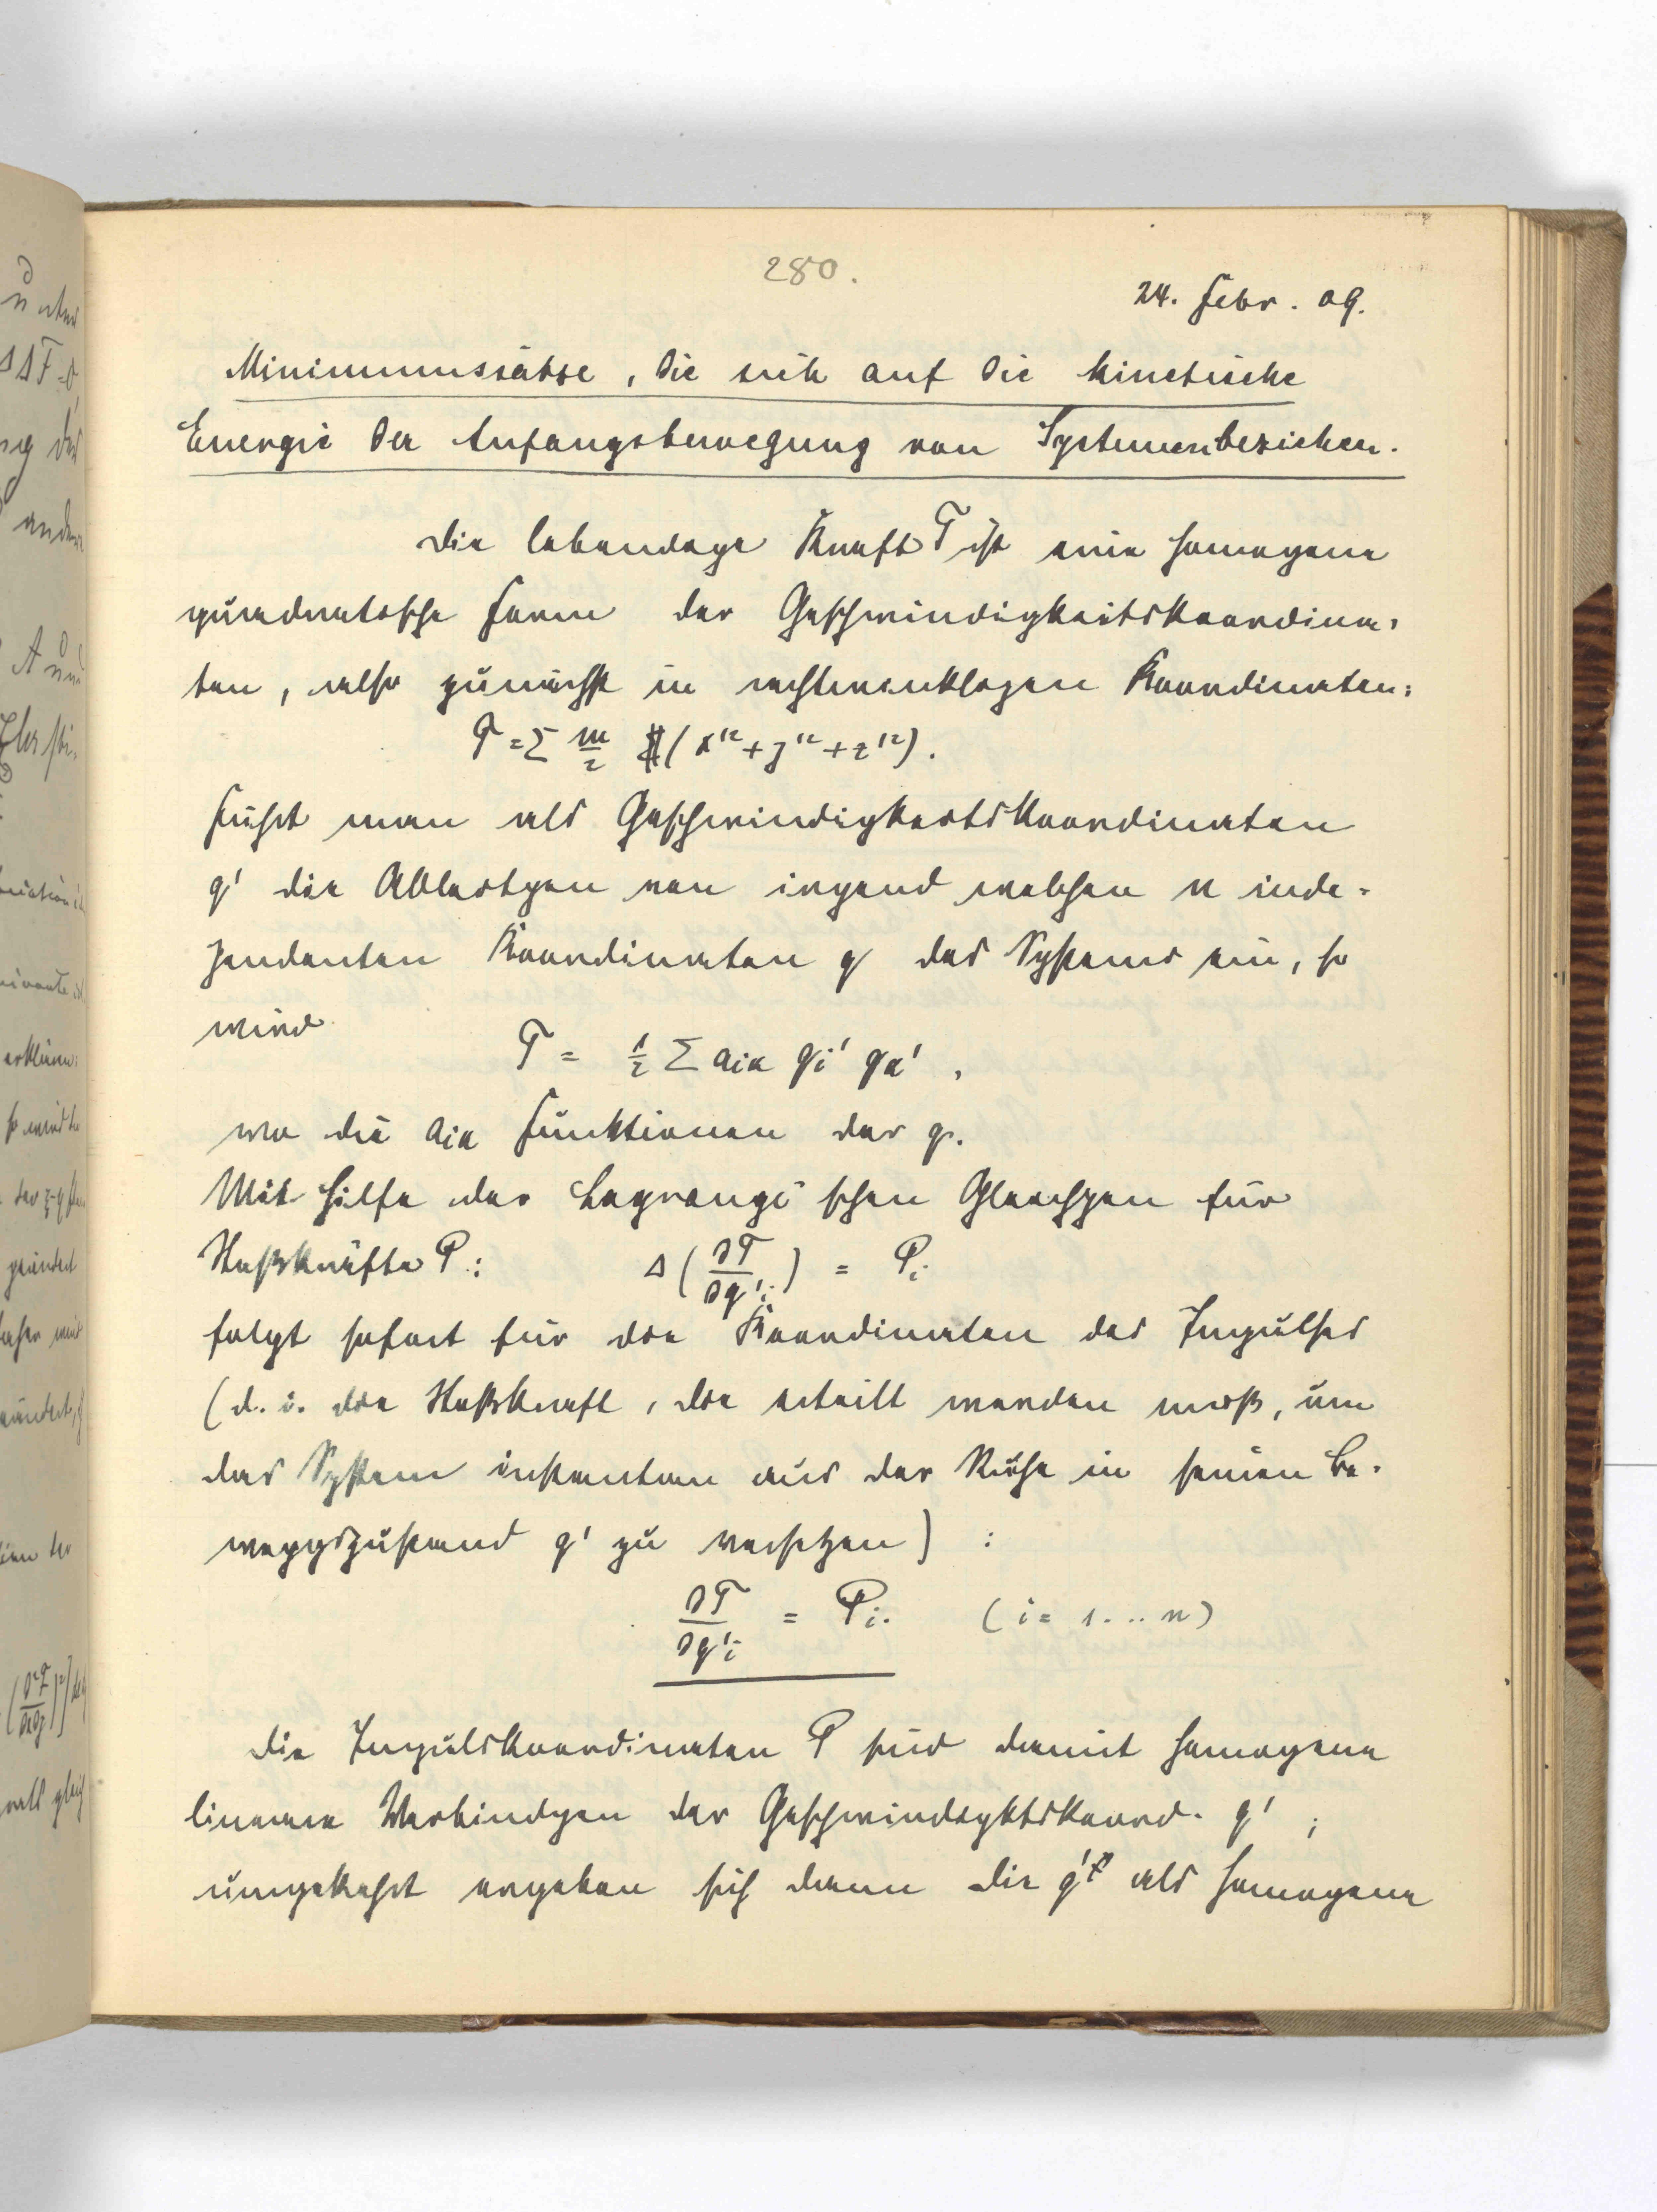 280.
24. Febr. 09.
Minimumssätze, die sich auf die kinetische
Energie der Anfangsbewegung von Systemen beziehen.
Die lebendige Kraft T ist eine homogene
quadratische Form der Geschwindigkeitskoordina-
ten, also zunächst in rechtwinkligen Koordinaten:
T = Σ m/2 (x'² + y'² + z'²).
Führt man als Geschwindigkeitskoordinaten
q' die Ableitgen von irgend welchen n inde-
pendenten Koordinaten q des Systems ein, so
wird
T = 1/2 Σ aᵢₖ qᵢ' qₖ',
wo die aᵢₖ Funktionen der q.
Mit Hilfe der Lagrange'schen Gleichgen für
Stoßkräfte P: Δ(∂T/∂q'ᵢ) = Pᵢ
folgt sofort für die Koordinaten des Impulses
(d. i. die Stoßkraft, die erteilt werden muß, um
das System instantan aus der Ruhe in seinen Be-
weggszustand q' zu versetzen) :
∂T/∂q'ᵢ = Pᵢ. (i = 1 ... n)
Die Impulskoordinaten P sind damit homogene
lineare Verbindgen der Geschwindigktskoord. q' ;
umgekehrt ergeben sich dann die q' als homogene
ng des
erklären
geändert